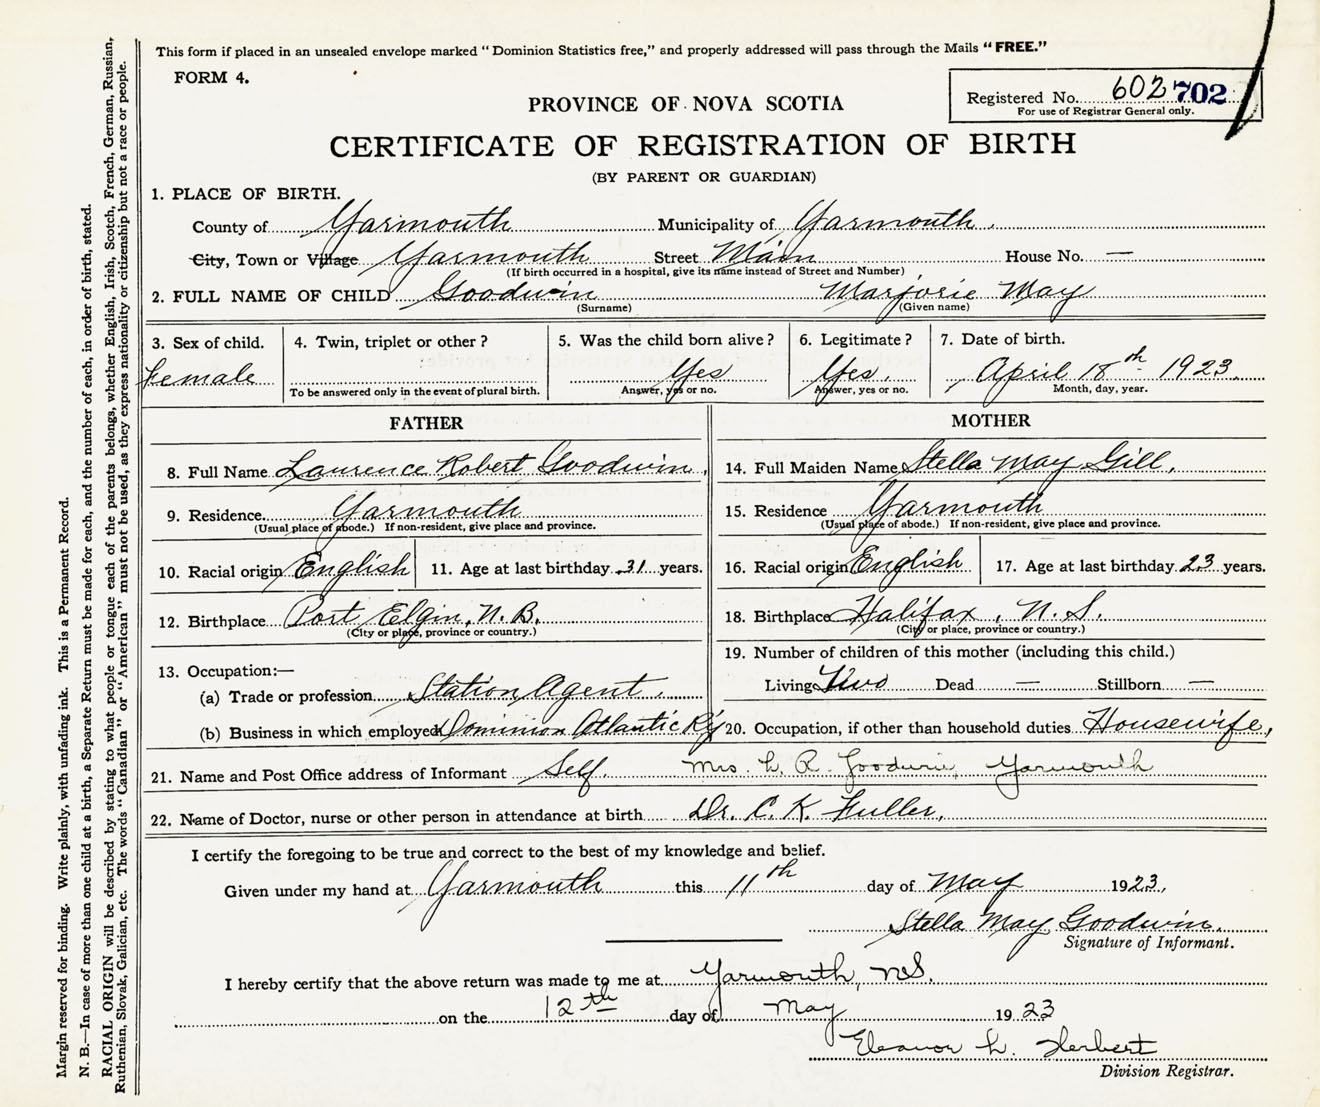 This form if placed in an unsealed envelope marked "Dominion Statistics free," and properly addressed will pass through the Mails "FREE."
FORM 4.
Registered No. 602 702
For use of Registrar General only.
PROVINCE OF NOVA SCOTIA
CERTIFICATE OF REGISTRATION OF BIRTH
(BY PARENT OR GUARDIAN)
1. PLACE OF BIRTH.
County of Yarmouth Municipality of Yarmouth.
City, Town or Village Yarmouth Street Main House No. —
(If birth occurred in a hospital, give its name instead of Street and Number)
2. FULL NAME OF CHILD Goodwin Marjorie May
(Surname) (Given name)
3. Sex of child. 4. Twin, triplet or other? 5. Was the child born alive? 6. Legitimate? 7. Date of birth.
Female Yes Yes. April 18th 1923.
To be answered only in the event of plural birth. Answer, yes or no. Answer, yes or no. Month, day, year.
FATHER
8. Full Name Laurence Robert Goodwin,
9. Residence Yarmouth
(Usual place of abode.) If non-resident, give place and province.
10. Racial origin English 11. Age at last birthday 31 years.
12. Birthplace Port Elgin, N. B.
(City or place, province or country.)
13. Occupation:—
(a) Trade or profession Station Agent.
(b) Business in which employed Dominion Atlantic Ry
MOTHER
14. Full Maiden Name Stella May Gill,
15. Residence Yarmouth
(Usual place of abode.) If non-resident, give place and province.
16. Racial origin English 17. Age at last birthday 23 years.
18. Birthplace Halifax, N. S.
(City or place, province or country.)
19. Number of children of this mother (including this child.)
Living Two Dead — Stillborn —
20. Occupation, if other than household duties Housewife,
21. Name and Post Office address of Informant Self. Mrs. L. R. Goodwin, Yarmouth
22. Name of Doctor, nurse or other person in attendance at birth Dr. C. K. Fuller,
I certify the foregoing to be true and correct to the best of my knowledge and belief.
Given under my hand at Yarmouth this 11th day of May 1923,
Stella May Goodwin.
Signature of Informant.
I hereby certify that the above return was made to me at Yarmouth, N.S.
on the 12th day of May 1923
Eleanor L. Herbert
Division Registrar.
Margin reserved for binding. Write plainly, with unfading ink. This is a Permanent Record.
N. B.—In case of more than one child at a birth, a Separate Return must be made for each, and the number of each, in order of birth, stated.
RACIAL ORIGIN will be described by stating to what people or tongue each of the parents belongs, whether English, Irish, Scotch, French, German, Russian,
Ruthenian, Slovak, Galician, etc. The words "Canadian" or "American" must not be used, as they express nationality or citizenship but not a race or people.